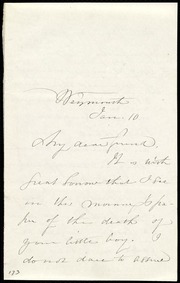 Weymouth
Jan. 10
My dear friend,
It is with
great sorrow that I see
in this morning's pa-
per of the death of
your little boy. I
do not dare to
173